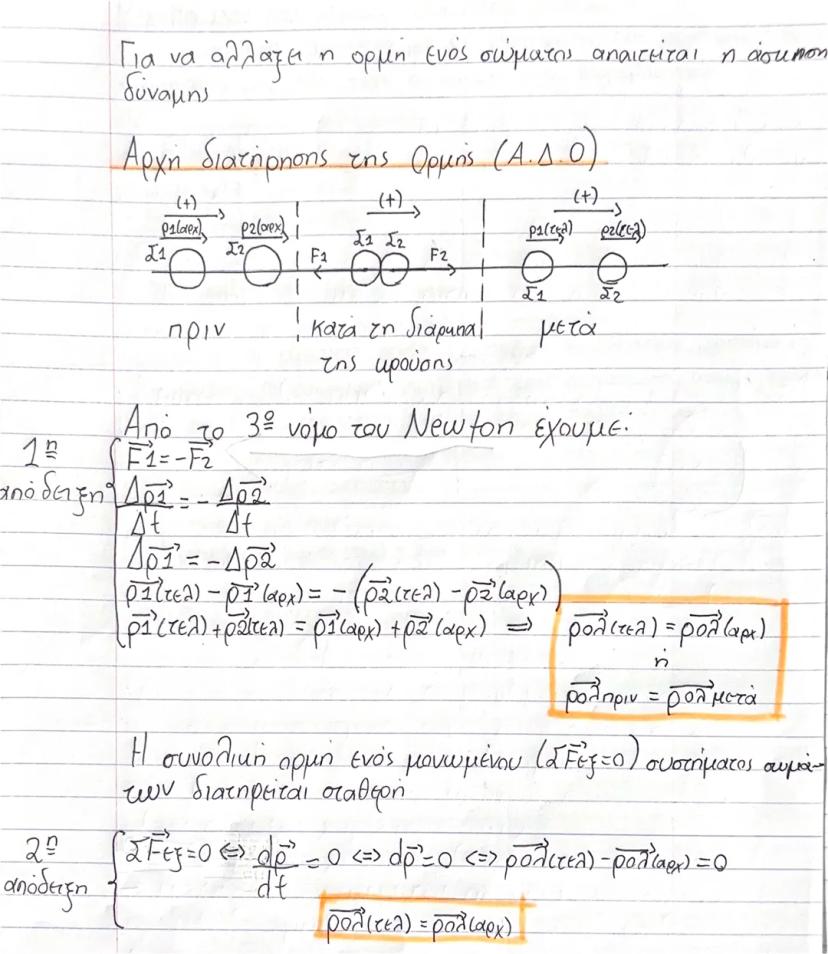 Για να αλλάξει η ορμή ενός σώματος απαιτείται η άσκηση
δύναμης
Αρχή διατήρησης της Ορμής (Α.Δ.Ο)
(+) (+) (+)
p1(αρχ) p2(αρχ) p1(τελ) p2(τελ)
Σ1 Σ2 F1 Σ1 Σ2 F2 Σ1 Σ2
πριν κατά τη διάρκεια μετά
της κρούσης
Από το 3º νόμο του Newton έχουμε:
1η απόδειξη
F⃗1=-F⃗2
Δp⃗1/Δt = - Δp⃗2/Δt
Δp⃗1 = -Δp⃗2
p⃗1(τελ) - p⃗1(αρχ) = - (p⃗2(τελ) - p⃗2(αρχ))
p⃗1(τελ) + p⃗2(τελ) = p⃗1(αρχ) + p⃗2(αρχ) ⇒ p⃗ολ(τελ) = p⃗ολ(αρχ)
ή
p⃗ολπριν = p⃗ολμετά
Η συνολική ορμή ενός μονωμένου (ΣF⃗εξ=0) συστήματος σωμά-
των διατηρείται σταθερή
2η απόδειξη
ΣF⃗εξ=0 <=> dp⃗/dt = 0 <=> dp⃗=0 <=> p⃗ολ(τελ) - p⃗ολ(αρχ) = 0
p⃗ολ(τελ) = p⃗ολ(αρχ)